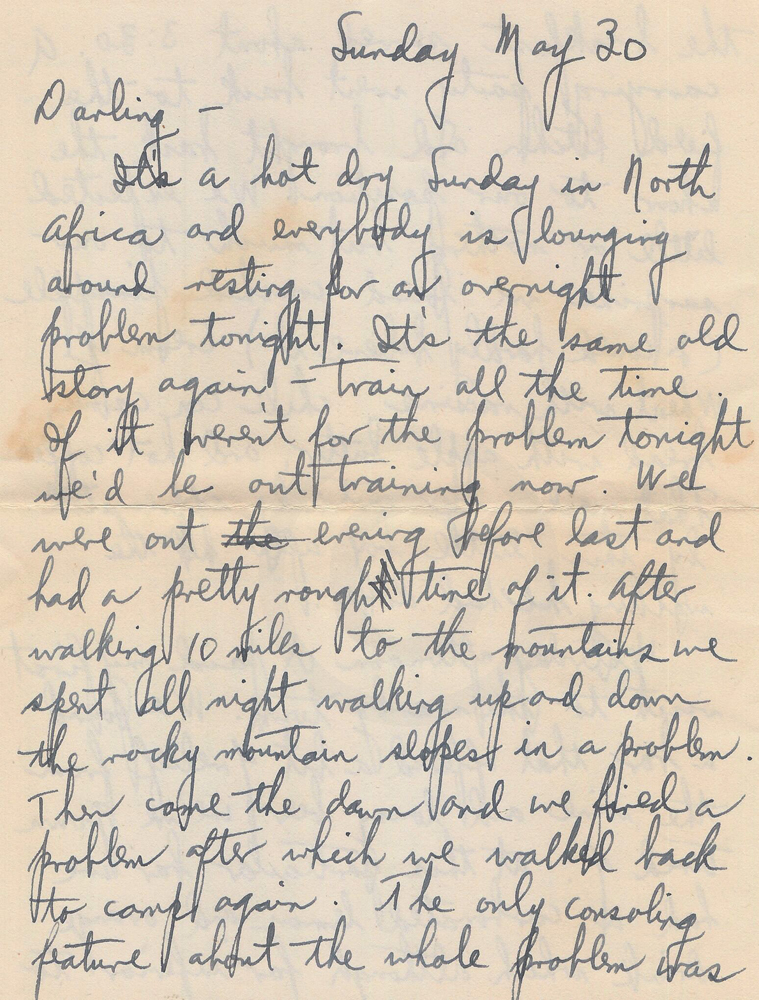 Sunday May 30
Darling -
It's a hot dry Sunday in North
Africa and everybody is lounging
around resting for an overnight
problem tonight. It's the same old
story again - train all the time.
If it weren't for the problem tonight
we'd be out training now. We
were out the evening before last and
had a pretty rough time of it. After
walking 10 miles to the mountains we
spent all night walking up and down
the rocky mountain slopes in a problem.
Then came the dawn and we fired a
problem after which we walked back
to camp again. The only consoling
feature about the whole problem was